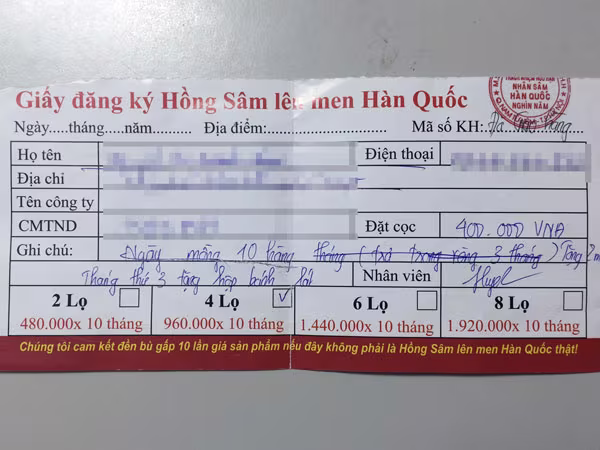 NHÂN SÂM
HÀN QUỐC
NGHÌN NĂM
Giấy đăng ký Hồng Sâm lên men Hàn Quốc
Ngày.....tháng....năm....... Địa điểm:............................... Mã số KH: Đã hàng
Họ tên Điện thoại
Địa chỉ
Tên công ty
CMTND Đặt cọc 400.000 VNĐ
Ghi chú: Ngày mồng 10 hàng tháng (trả trong vòng 3 tháng) Tặng 2
Tháng thứ 3 tặng hộp bánh Nhân viên
2 Lọ 4 Lọ ✓ 6 Lọ 8 Lọ
480.000x 10 tháng 960.000x 10 tháng 1.440.000x 10 tháng 1.920.000x 10 tháng
Chúng tôi cam kết đền bù gấp 10 lần giá sản phẩm nếu đây không phải là Hồng Sâm lên men Hàn Quốc thật!